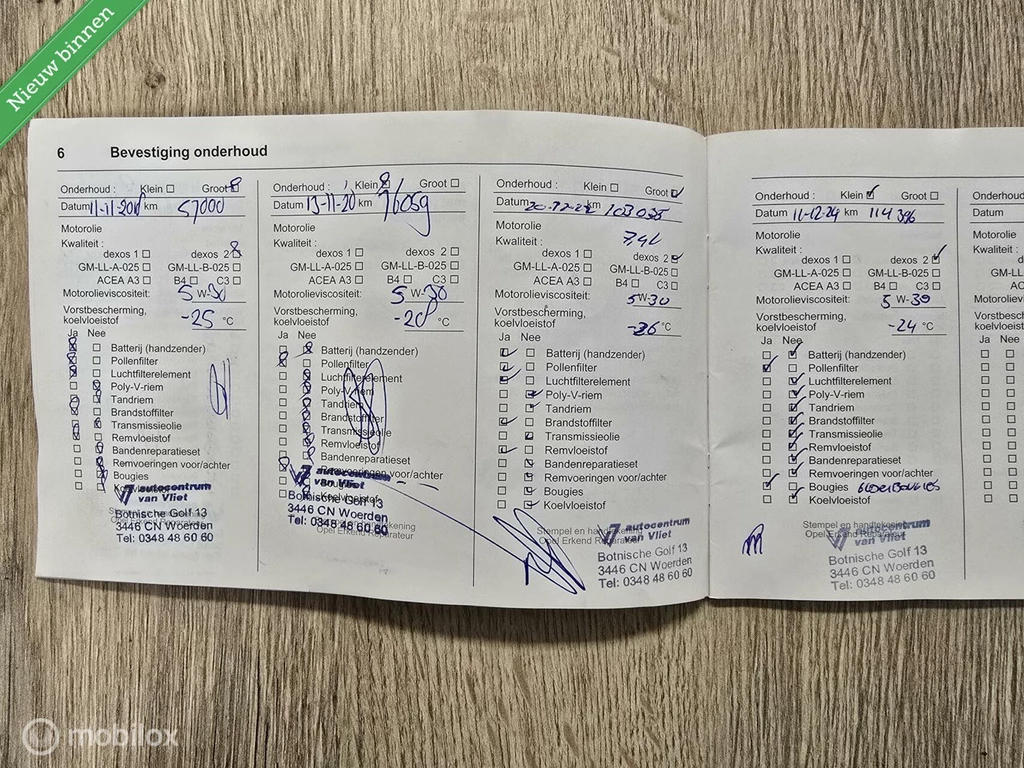 Nieuw binnen
6 Bevestiging onderhoud
Onderhoud : Klein Groot
Datum 11-11-2018 km 57000
Motorolie
Kwaliteit :
dexos 1 dexos 2
GM-LL-A-025 GM-LL-B-025
ACEA A3 B4 C3
Motorolieviscositeit: 5 W-30
Vorstbescherming,
koelvloeistof -25 °C
Ja Nee
Batterij (handzender)
Pollenfilter
Luchtfilterelement
Poly-V-riem
Tandriem
Brandstoffilter
Transmissieolie
Remvloeistof
Bandenreparatieset
Remvoeringen voor/achter
Bougies
autocentrum
van Vliet
Botnische Golf 13
3446 CN Woerden
Tel: 0348 48 60 60
Onderhoud : Klein Groot
Datum 13-11-20 km 76059
Motorolie
Kwaliteit :
dexos 1 dexos 2
GM-LL-A-025 GM-LL-B-025
ACEA A3 B4 C3
Motorolieviscositeit: 5 W-30
Vorstbescherming,
koelvloeistof -28 °C
Ja Nee
Batterij (handzender)
Pollenfilter
Luchtfilterelement
Poly-V-riem
Tandriem
Brandstoffilter
Transmissieolie
Remvloeistof
Bandenreparatieset
Remvoeringen voor/achter
Koelvloeistof
autocentrum
van Vliet
Botnische Golf 13
3446 CN Woerden
Tel: 0348 48 60 60
Opel Erkend Reparateur
Onderhoud : Klein Groot
Datum km
Motorolie
Kwaliteit : 7,4L
dexos 1 dexos 2
GM-LL-A-025 GM-LL-B-025
ACEA A3 B4 C3
Motorolieviscositeit: 5W-30
Vorstbescherming,
koelvloeistof -36 °C
Ja Nee
Batterij (handzender)
Pollenfilter
Luchtfilterelement
Poly-V-riem
Tandriem
Brandstoffilter
Transmissieolie
Remvloeistof
Bandenreparatieset
Remvoeringen voor/achter
Bougies
Koelvloeistof
Stempel en handtekening
Opel Erkend Reparateur
autocentrum
van Vliet
Botnische Golf 13
3446 CN Woerden
Tel: 0348 48 60 60
Onderhoud : Klein Groot
Datum 11-12-24 km 114396
Motorolie
Kwaliteit :
dexos 1 dexos 2
GM-LL-A-025 GM-LL-B-025
ACEA A3 B4 C3
Motorolieviscositeit: 5 W-30
Vorstbescherming,
koelvloeistof -24 °C
Ja Nee
Batterij (handzender)
Pollenfilter
Luchtfilterelement
Poly-V-riem
Tandriem
Brandstoffilter
Transmissieolie
Remvloeistof
Bandenreparatieset
Remvoeringen voor/achter
Bougies GLOEIBOUGIES
Koelvloeistof
Stempel en handtekening
Opel Erkend Reparateur
autocentrum
van Vliet
Botnische Golf 13
3446 CN Woerden
Tel: 0348 48 60 60
Onderhoud
Datum
Motorolie
Kwaliteit :
GM-LL-
Motorolie
Vorstbescherming
koelvloeistof
Ja Nee
mobilox